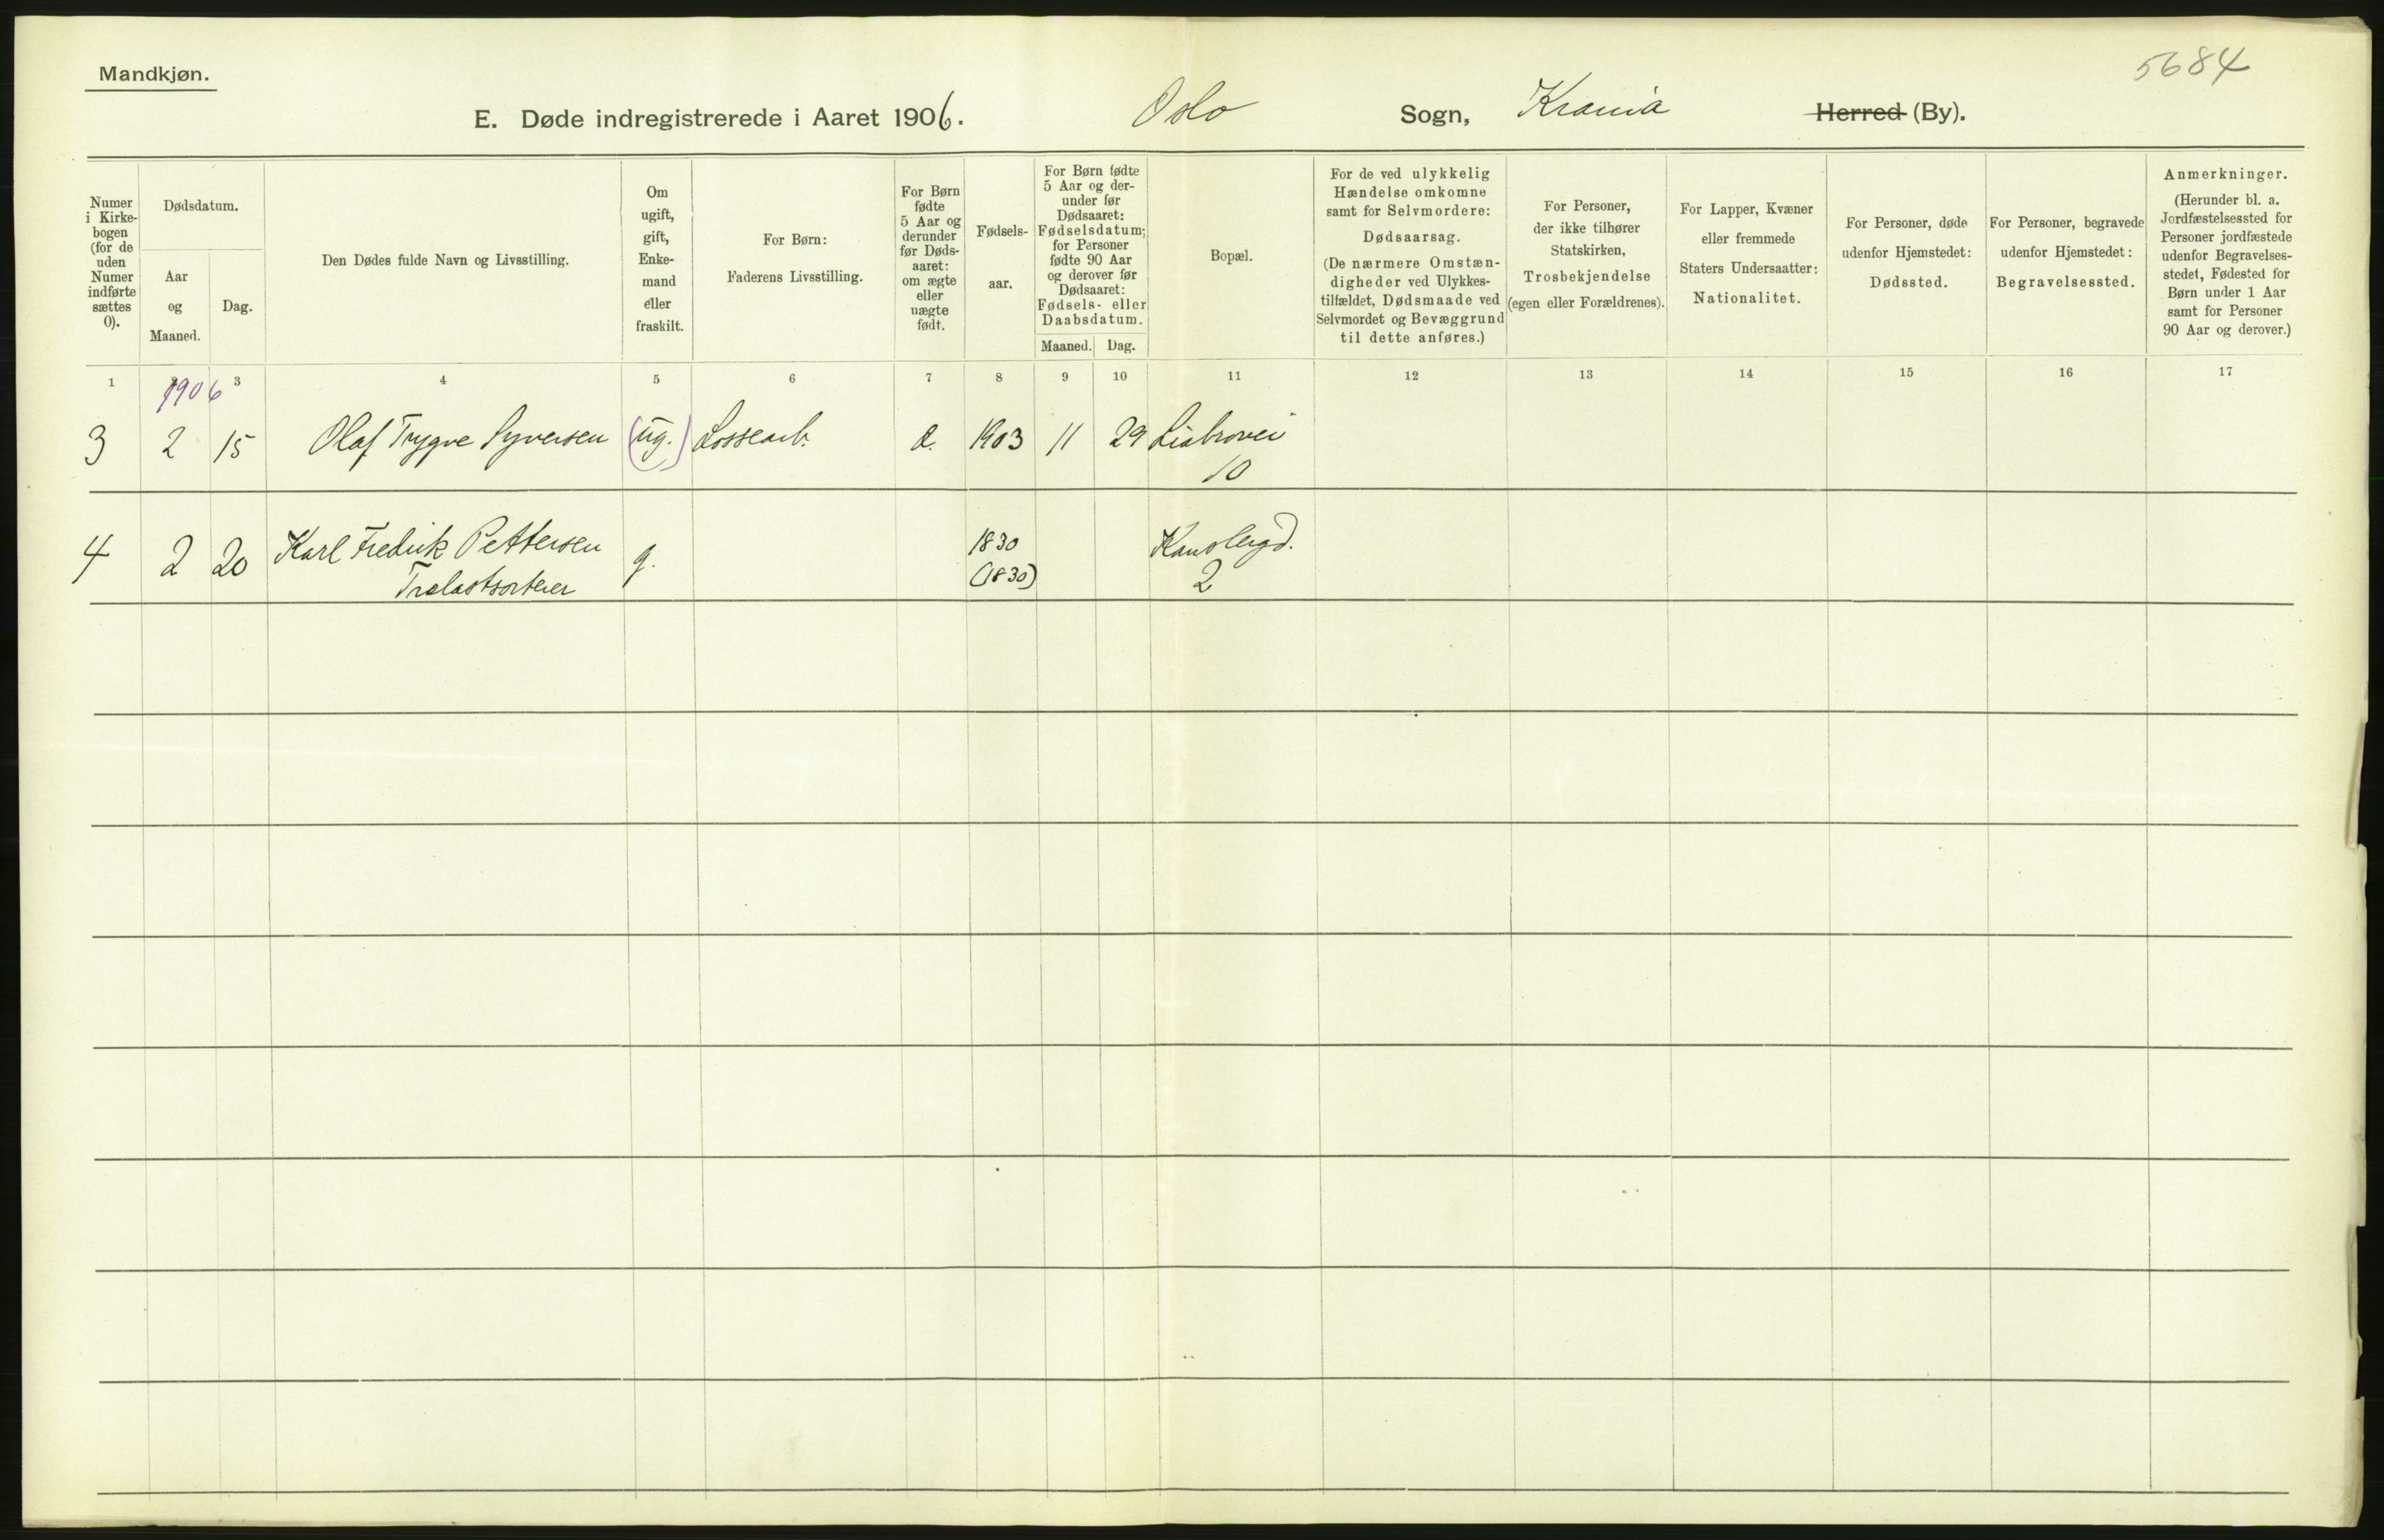 5684
Mandkjøn.
E. Døde indregistrerede i Aaret 1906. Oslo Sogn, Krania Herred (By).
Numer
i Kirke-
bogen
(for de
uden
Numer
indførte
sættes
0).
Dødsdatum.
Aar
og
Maaned.
Dag.
Den Dødes fulde Navn og Livsstilling.
Om
ugift,
gift,
Enke-
mand
eller
fraskilt.
For Børn:
Faderens Livsstilling.
For Børn
fødte
5 Aar og
derunder
før Døds-
aaret:
om ægte
eller
uægte
født.
Fødsels-
aar.
For Børn fødte
5 Aar og der-
under før
Dødsaaret:
Fødselsdatum;
for Personer
fødte 90 Aar
og derover før
Dødsaaret:
Fødsels- eller
Daabsdatum.
Maaned. Dag.
Bopæl.
For de ved ulykkelig
Hændelse omkomne
samt for Selvmordere:
Dødsaarsag.
(De nærmere Omstæn-
digheder ved Ulykkes-
tilfældet, Dødsmaade ved
Selvmordet og Bevæggrund
til dette anføres.)
For Personer,
der ikke tilhører
Statskirken,
Trosbekjendelse
(egen eller Forældrenes).
For Lapper, Kvæner
eller fremmede
Staters Undersaatter:
Nationalitet.
For Personer, døde
udenfor Hjemstedet:
Dødssted.
For Personer, begravede
udenfor Hjemstedet:
Begravelsessted.
Anmerkninger.
(Herunder bl. a.
Jordfæstelsessted for
Personer jordfæstede
udenfor Begravelses-
stedet, Fødested for
Børn under 1 Aar
samt for Personer
90 Aar og derover.)
1 3 4 5 6 7 8 9 10 11 12 13 14 15 16 17
1906
3 2 15 Olaf Trygve Syversen (ug.) Lossearb. 1903 11 29 Liabrovei
10
4 2 20 Karl Fredrik Pettersen g. 1830
Trælastsorterer (1830) 2